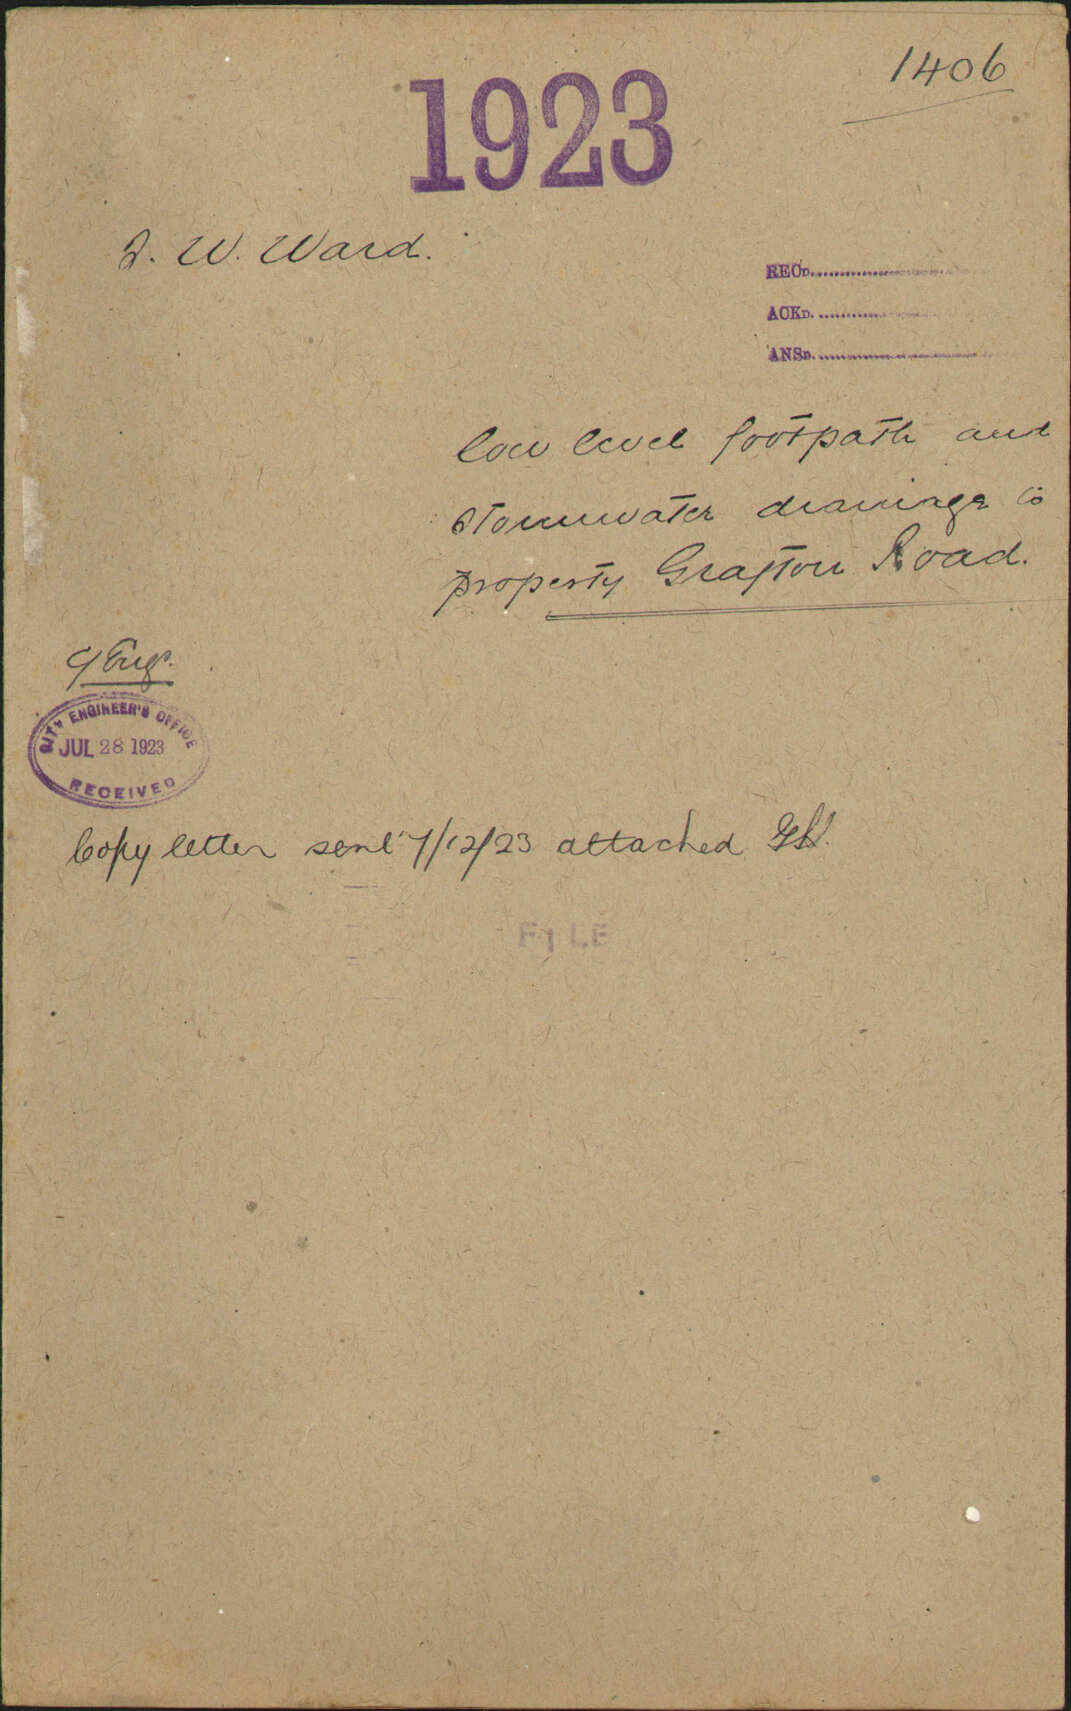 1406
1923
J. W. Ward.
RECD.
ACKD.
ANSD.
low level footpath and
stormwater drainage to
property Grafton Road.
C/Engr.
CITY ENGINEER'S OFFICE
JUL 28 1923
RECEIVED
Copy letter sent 7/12/23 attached
FILE